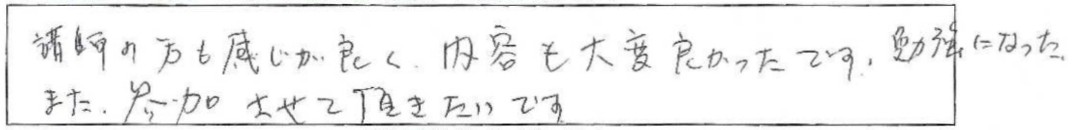 講師の方も感じが良く、内容も大変良かったです。勉強になった。
また、参加させて頂きたいです